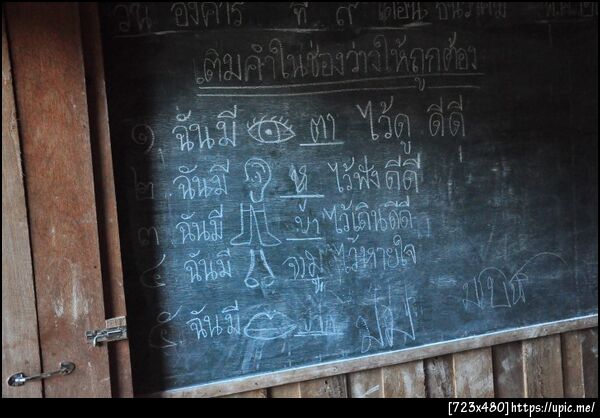 วัน อังคาร ที่ ๙ เดือน ธันวาคม
เติมคำในช่องว่างให้ถูกต้อง
๑. ฉันมี ตา ไว้ดู ดีดี
๒. ฉันมี หู ไว้ฟังดีดี
๓. ฉันมี ข้า ไว้เดินดีดี
๔. ฉันมี จมู ไว้หายใจ
๕. ฉันมี
[723x480]https://upic.me/